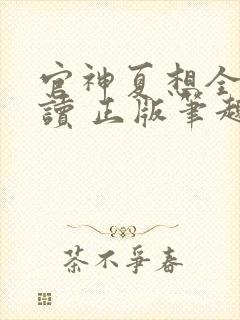 官神夏想全
讀 正版筆趣
茶不爭春